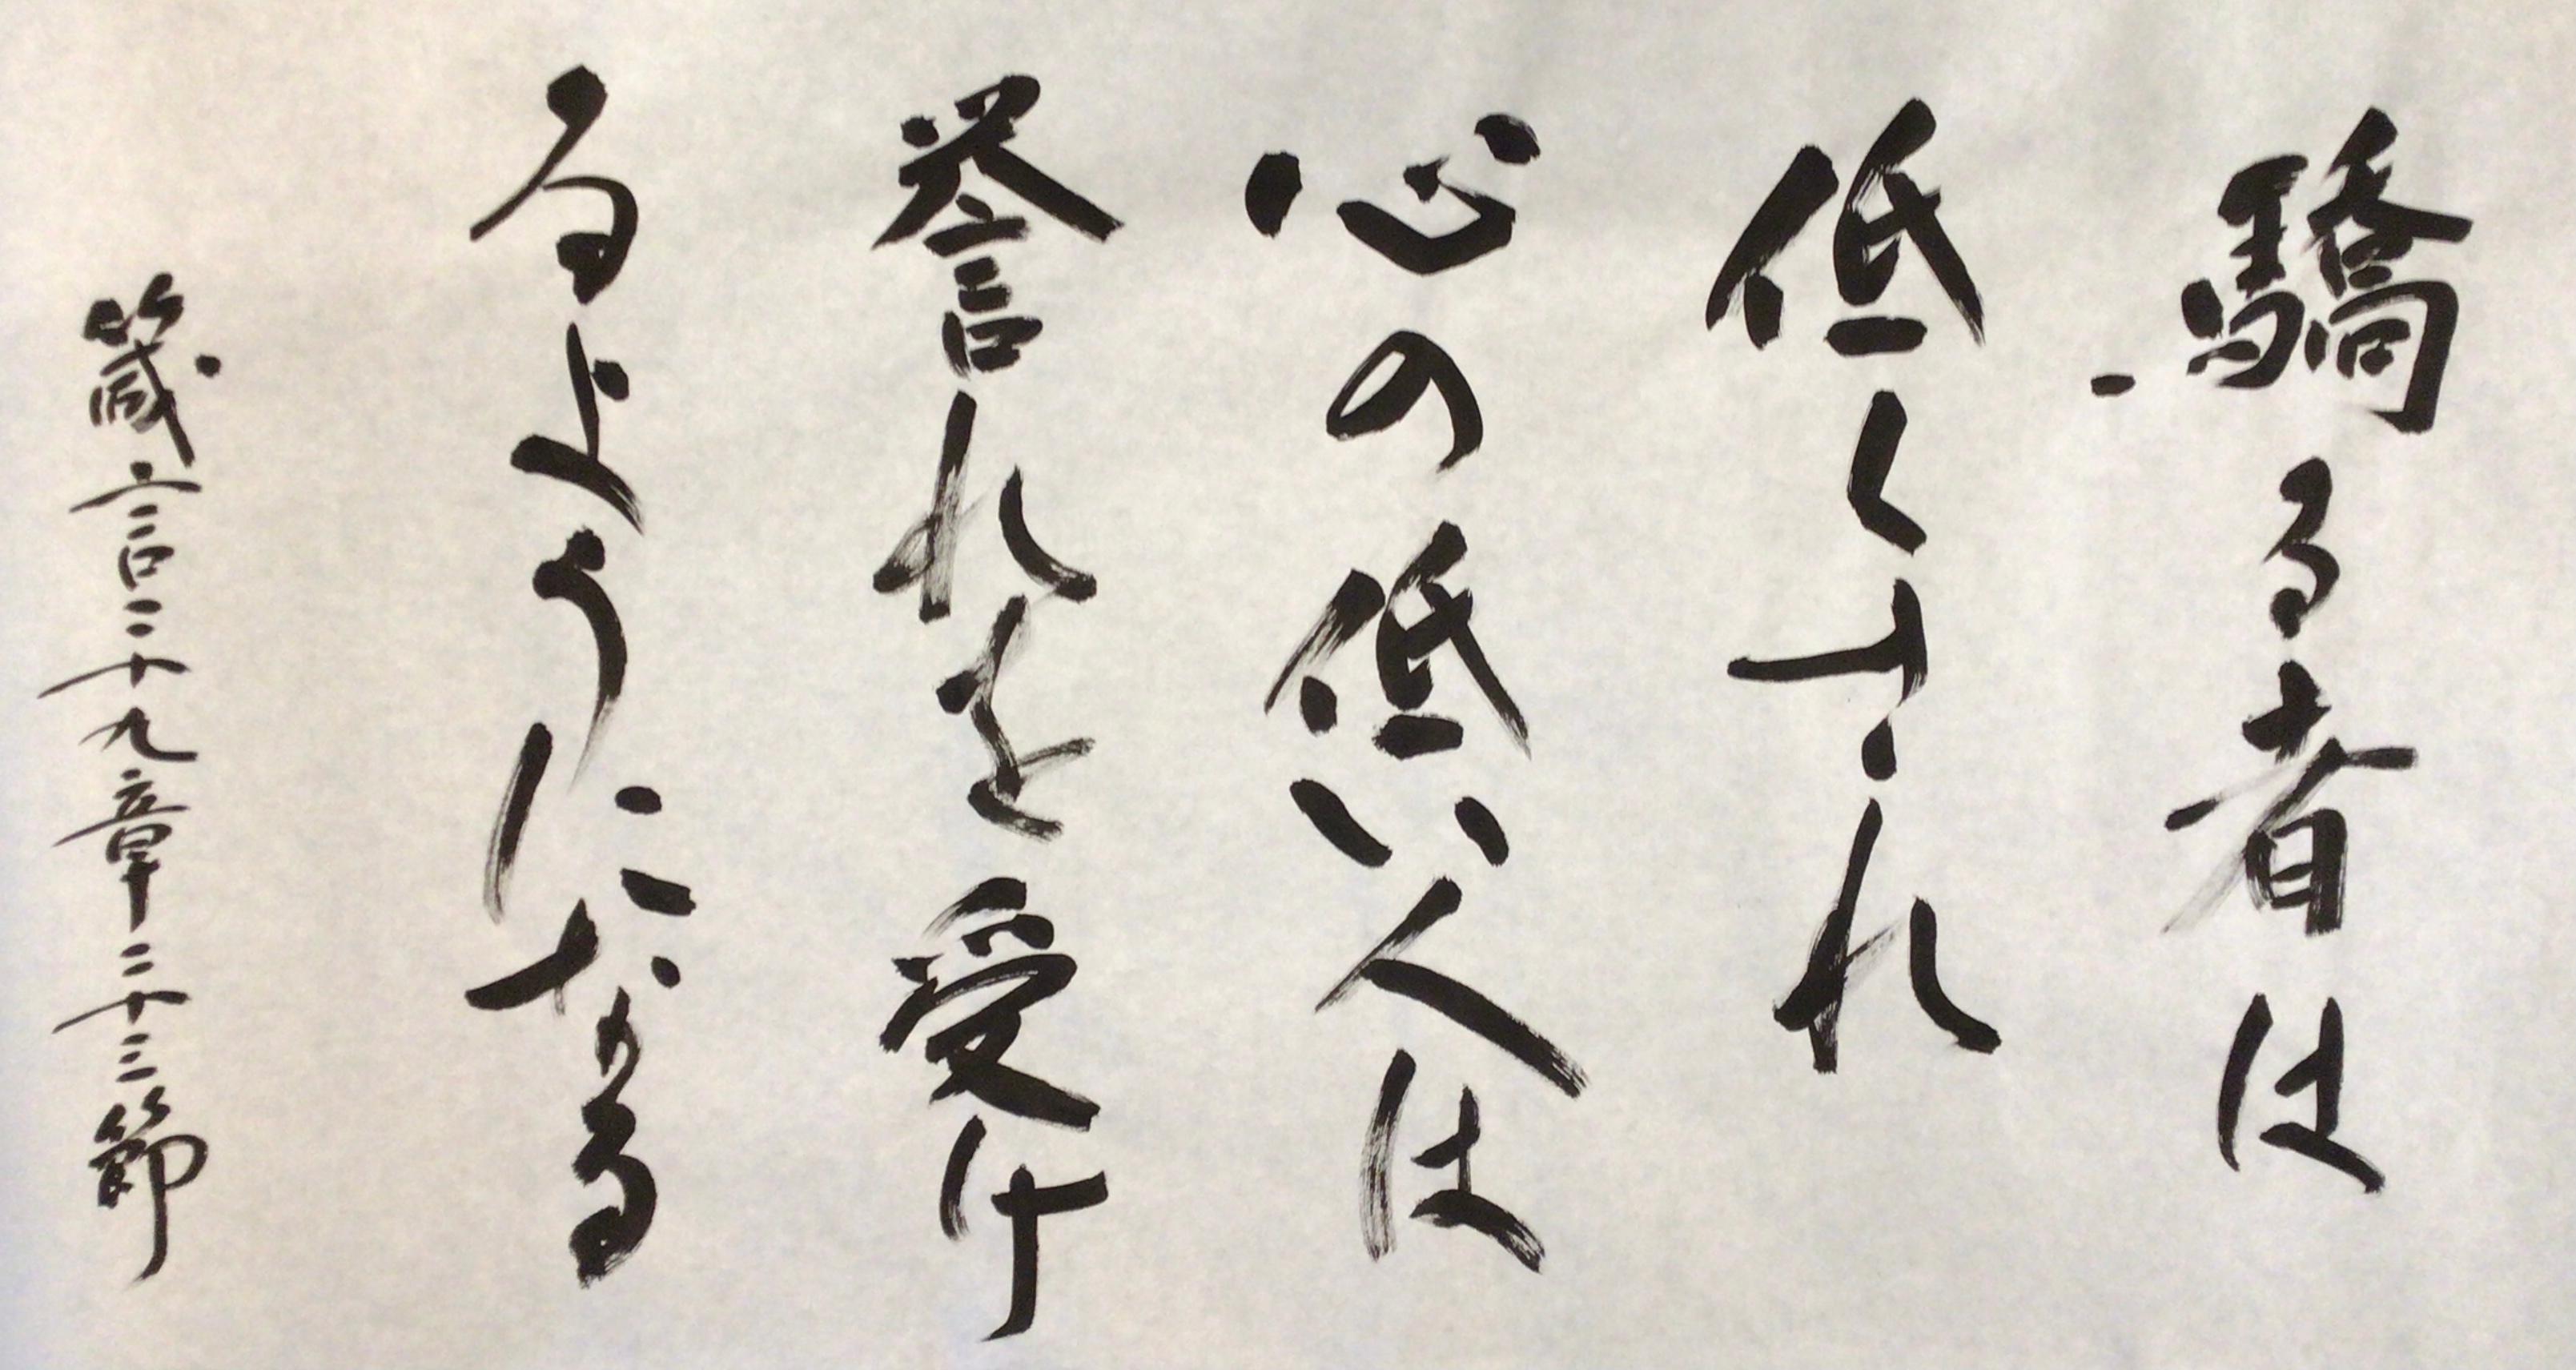 驕る者は
低くされ
心の低い人は
誉れを受け
るようになる
箴言二十九章二十三節